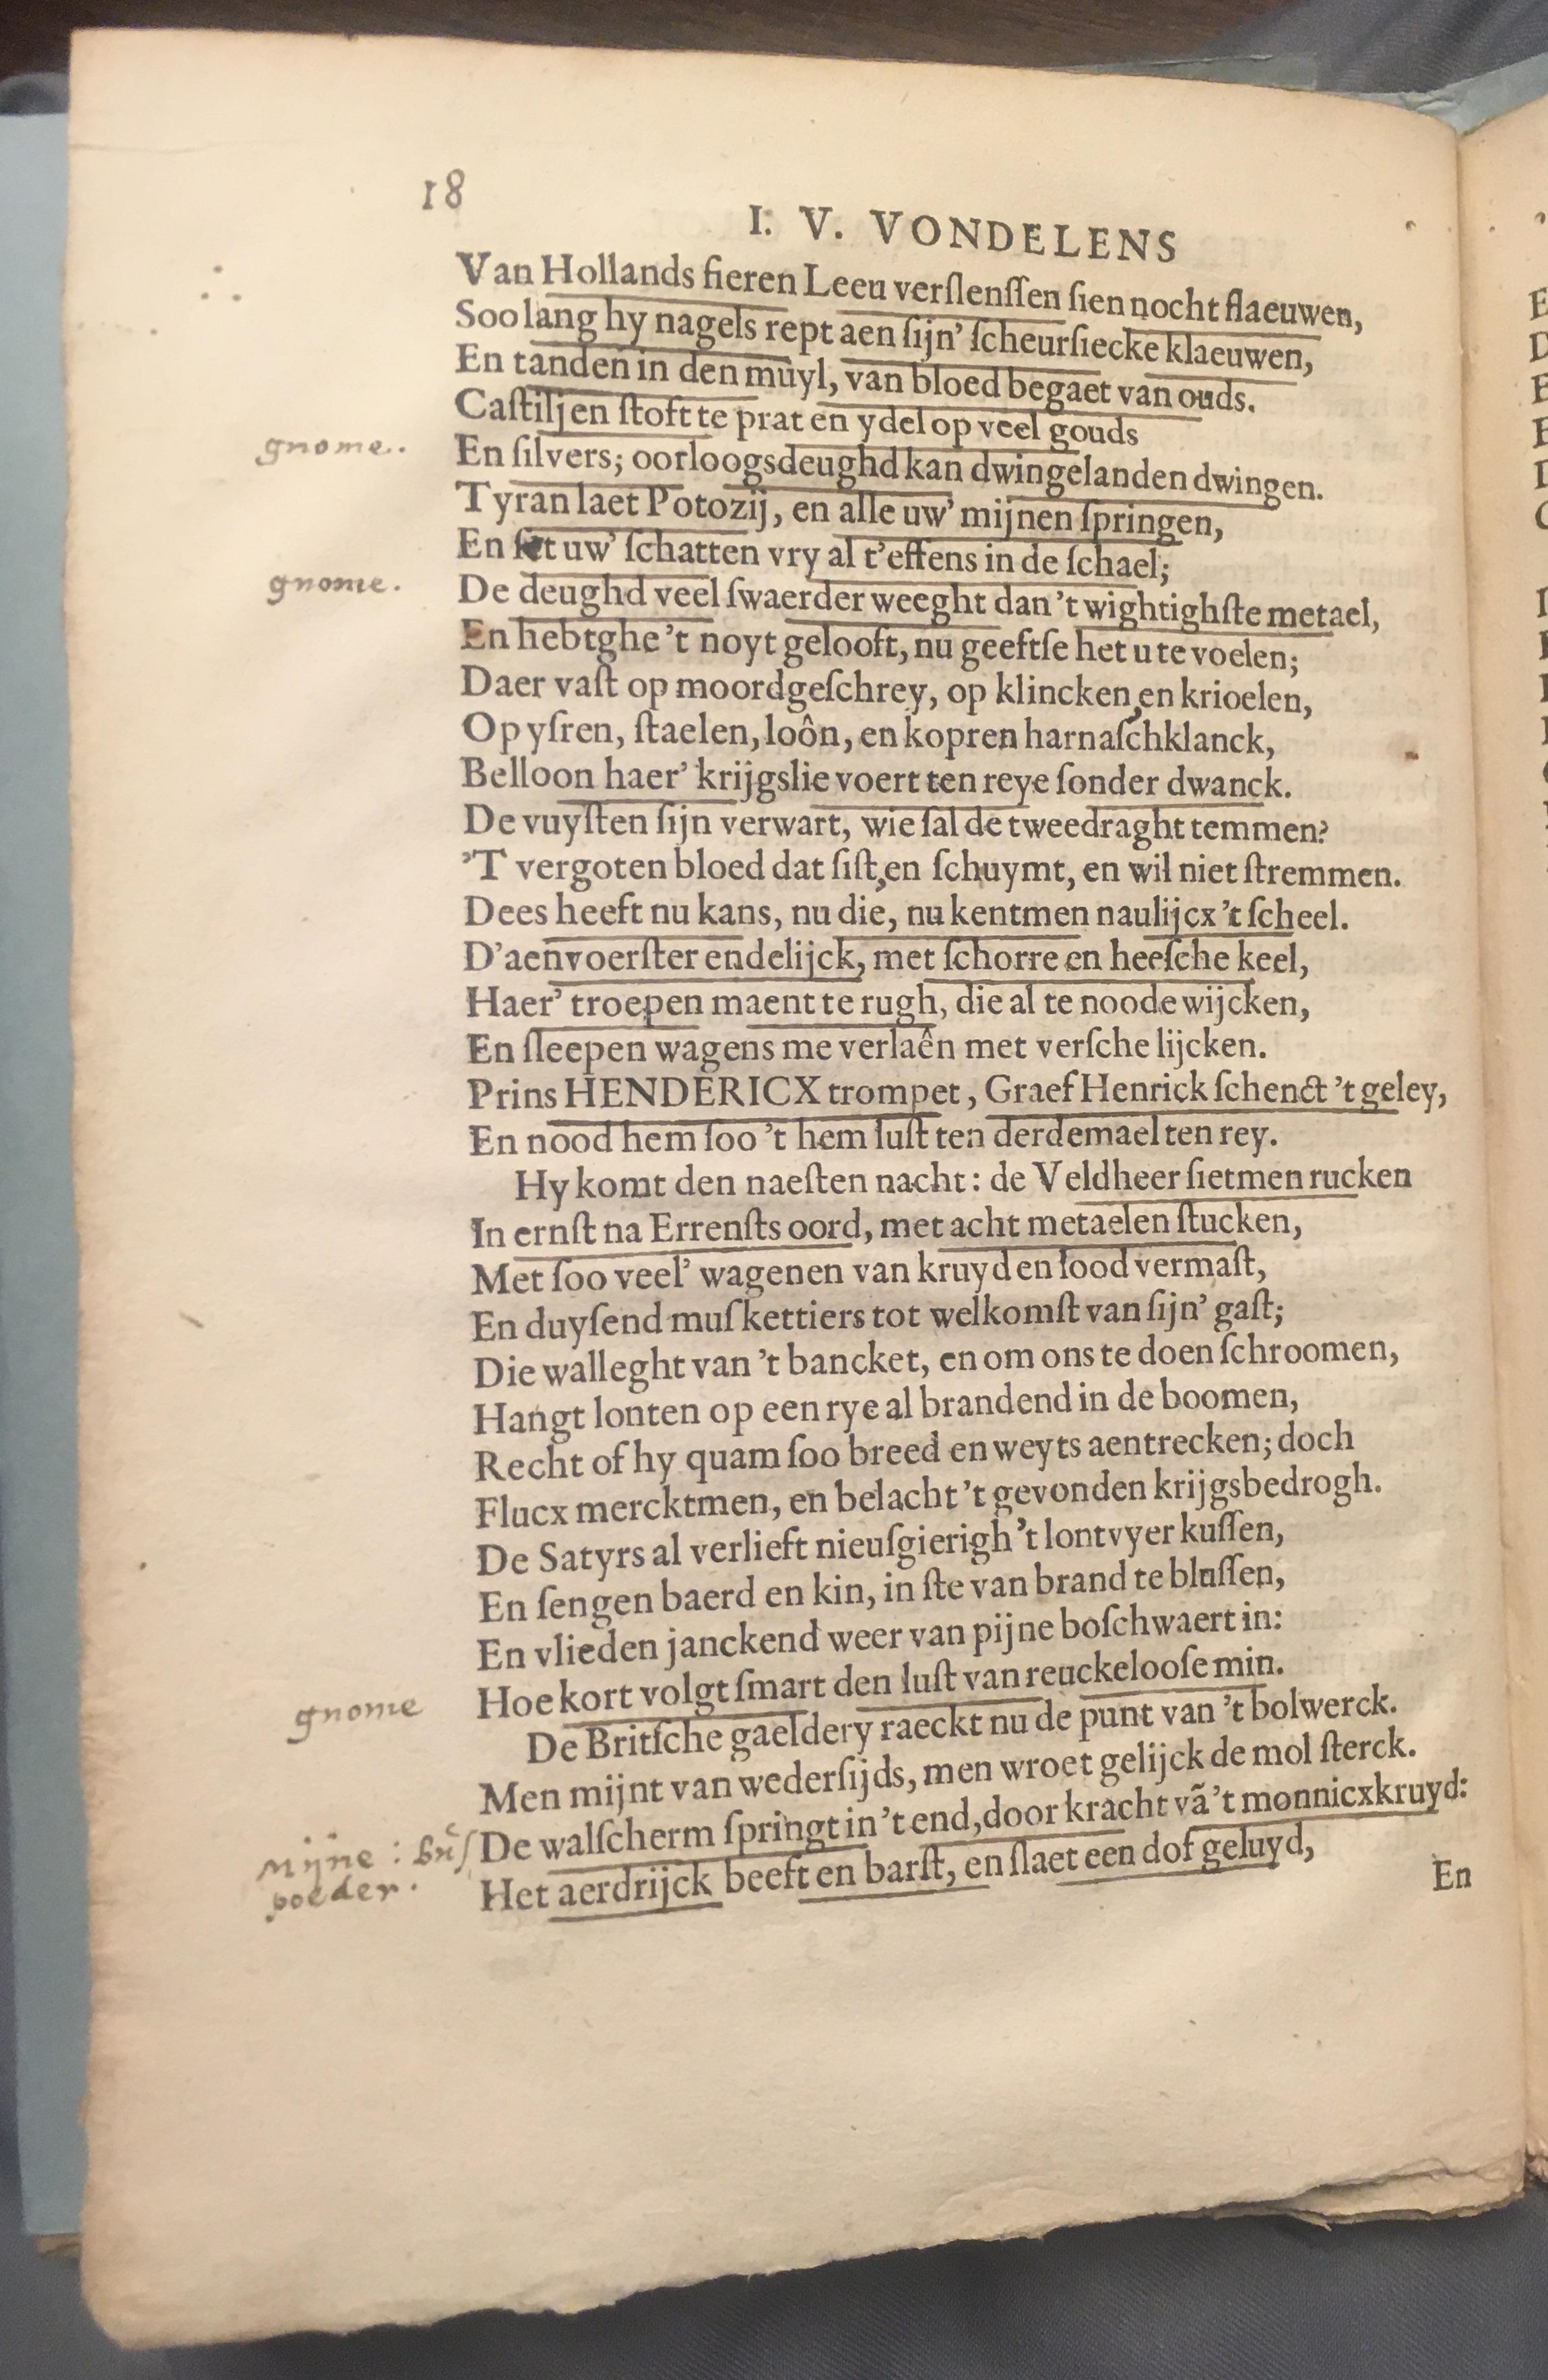 18
I. V. VONDELENS
Van Hollands fieren Leeu verſlenſſen ſien nocht flaeuwen,
Soo lang hy nagels rept aen ſijn' ſcheurſiecke klaeuwen,
En tanden in den muyl, van bloed begaet van ouds.
Caſtiljen ſtoft te prat en ydel op veel gouds
gnome..
En ſilvers; oorloogsdeughd kan dwingelanden dwingen.
Tyran laet Potozij, en alle uw' mijnen ſpringen,
En ſet uw' ſchatten vry al t'effens in de ſchael;
gnome.
De deughd veel ſwaerder weeght dan 't wightighſte metael,
En hebtghe 't noyt gelooft, nu geeftſe het u te voelen;
Daer vaſt op moordgeſchrey, op klincken, en krioelen,
Op yſren, ſtaelen, loôn, en kopren harnaſchklanck,
Belloon haer' krijgslie voert ten reye ſonder dwanck.
De vuyſten ſijn verwart, wie ſal de tweedraght temmen?
'T vergoten bloed dat ſiſt, en ſchuymt, en wil niet ſtremmen.
Dees heeft nu kans, nu die, nu kentmen naulijcx 't ſcheel.
D'aenvoerſter endelijck, met ſchorre en heeſche keel,
Haer' troepen maent te rugh, die al te noode wijcken,
En ſleepen wagens me verlaên met verſche lijcken.
Prins HENDERICX trompet, Graef Henrick ſchenct 't geley,
En nood hem ſoo 't hem luſt ten derdemael ten rey.
Hy komt den naeſten nacht: de Veldheer ſietmen rucken
In ernſt na Errenſts oord, met acht metaelen ſtucken,
Met ſoo veel' wagenen van kruyd en lood vermaſt,
En duyſend muſkettiers tot welkomſt van ſijn' gaſt;
Die walleght van 't bancket, en om ons te doen ſchroomen,
Hangt lonten op een rye al brandend in de boomen,
Recht of hy quam ſoo breed en weyts aentrecken; doch
Flucx mercktmen, en belacht 't gevonden krijgsbedrogh.
De Satyrs al verlieft nieuſgierigh 't lontvyer kuſſen,
En ſengen baerd en kin, in ſte van brand te bluſſen,
En vlieden janckend weer van pijne boſchwaert in:
gnome
Hoe kort volgt ſmart den luſt van reuckelooſe min.
De Britſche gaeldery raeckt nu de punt van 't bolwerck.
Men mijnt van wederſijds, men wroet gelijck de mol ſterck.
De walſcherm ſpringt in 't end, door kracht vã 't monnicxkruyd:
mijne :
poeder.
Het aerdrijck beeft en barſt, en ſlaet een dof geluyd,
En